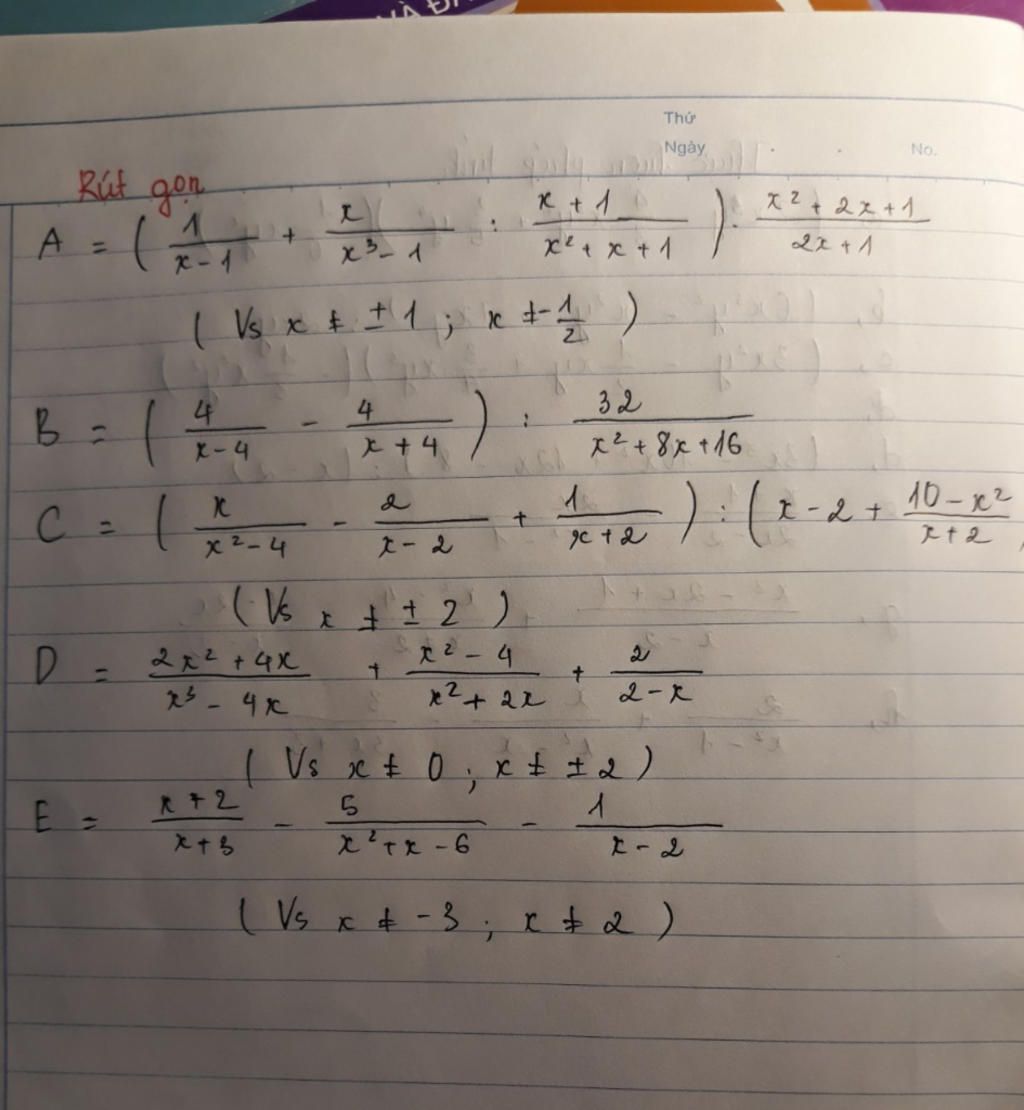 VÀ
Thứ
Ngày . . No.
Rút gọn
A = ( 1/(x-1) + x/(x³-1) : (x+1)/(x²+x+1) ) . (x²+2x+1)/(2x+1)
( Vs x ≠ ±1 ; x ≠ -1/2 )
B = ( 4/(x-4) - 4/(x+4) ) : 32/(x²+8x+16)
C = ( x/(x²-4) - 2/(x-2) + 1/(x+2) ) : ( x-2 + (10-x²)/(x+2)
( Vs x ≠ ±2 )
D = (2x²+4x)/(x³-4x) + (x²-4)/(x²+2x) + 2/(2-x)
( Vs x ≠ 0 ; x ≠ ±2 )
E = (x+2)/(x+3) - 5/(x²+x-6) - 1/(x-2)
( Vs x ≠ -3 ; x ≠ 2 )